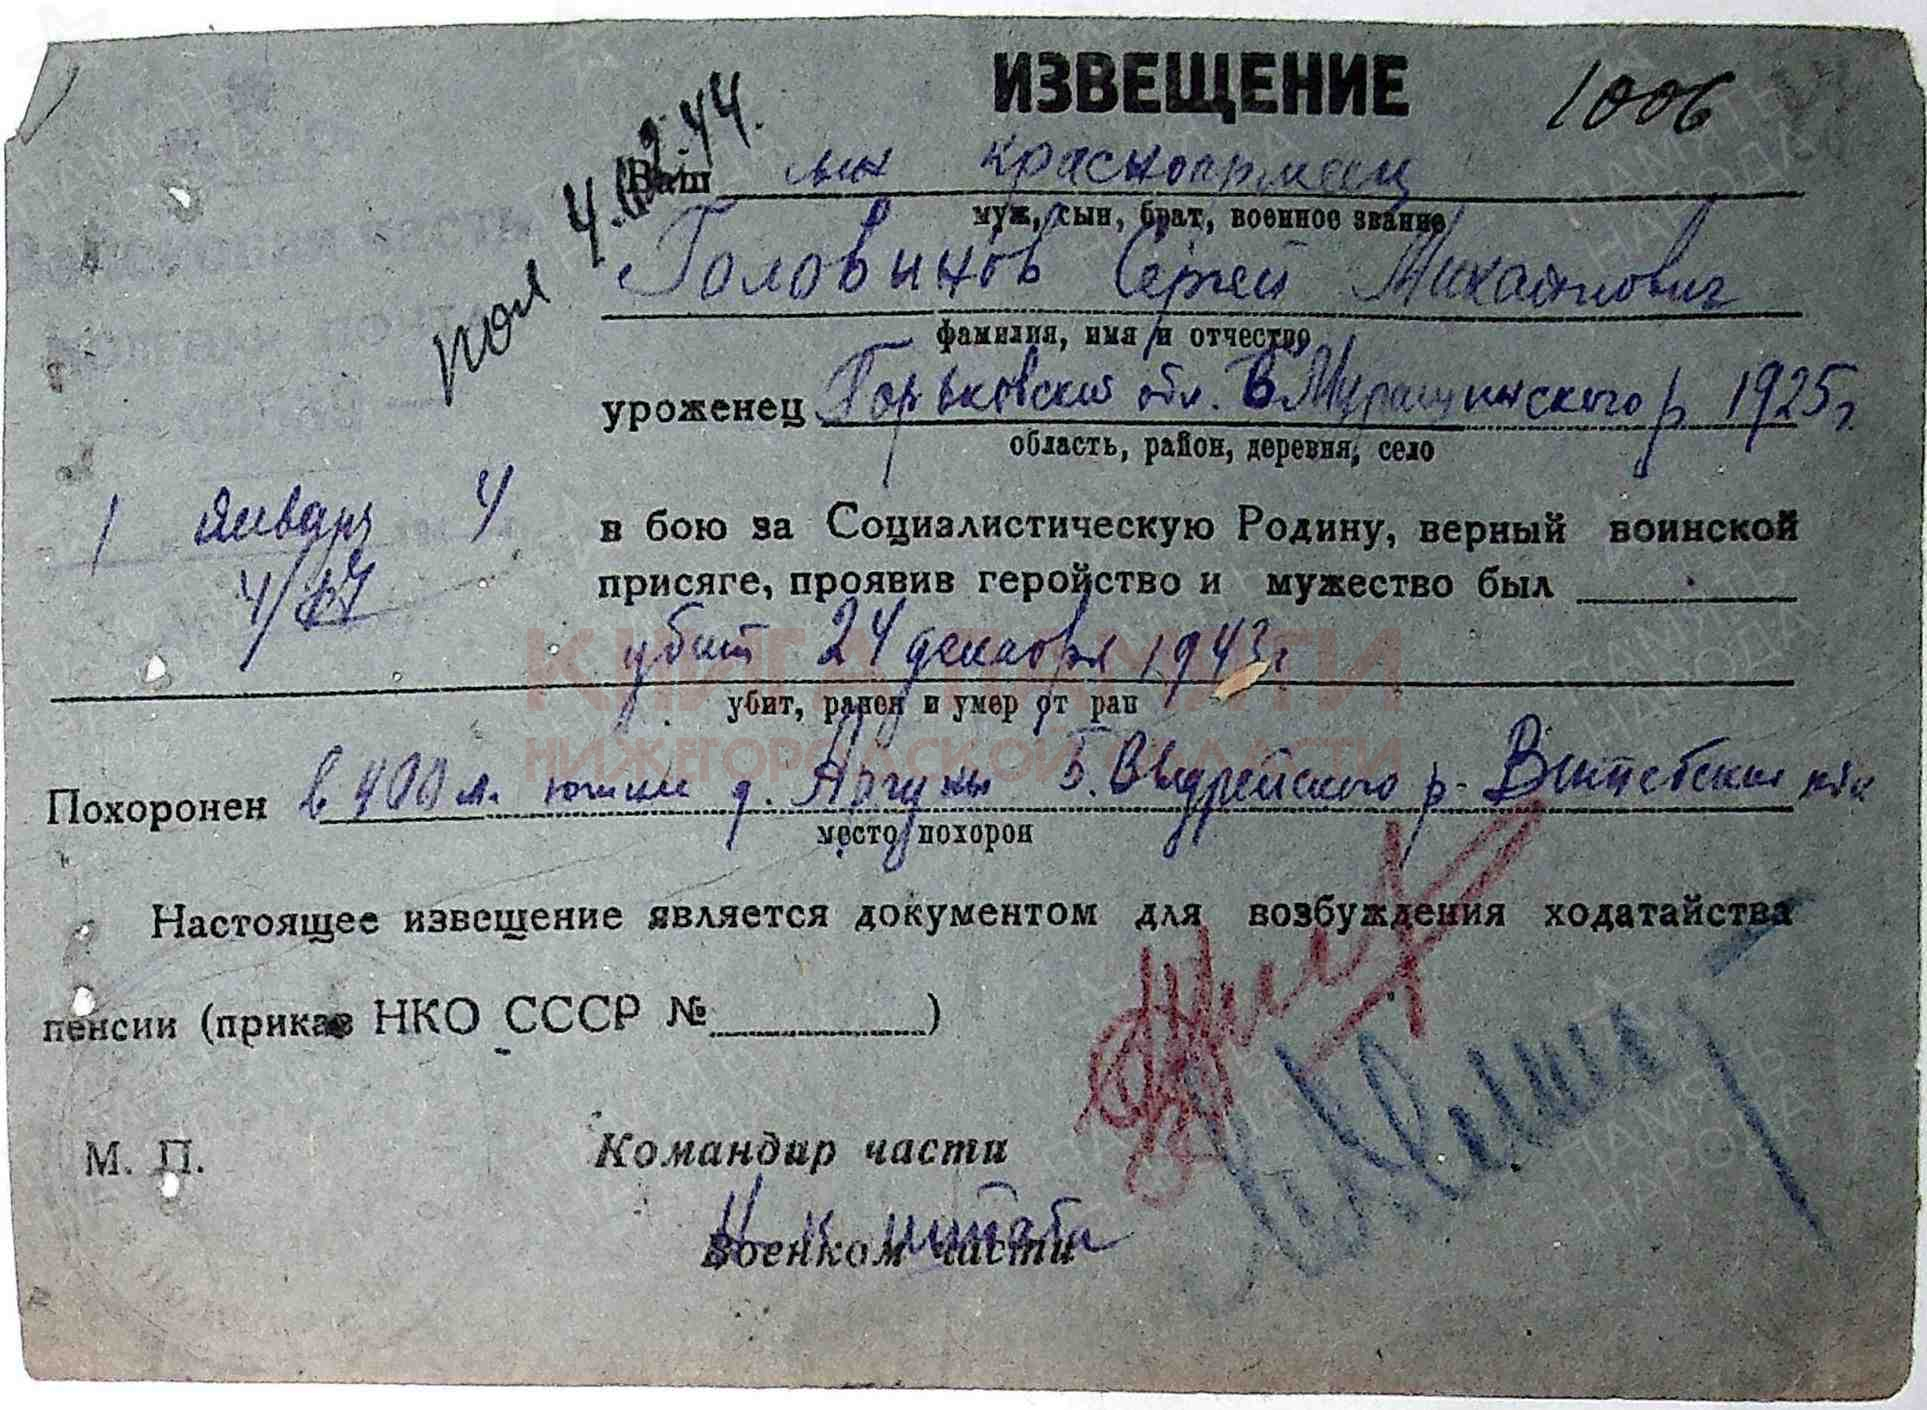 ИЗВЕЩЕНИЕ
1006
пол 4.2.44.
Ваш сын красноармеец
муж, сын, брат, военное звание
Головинов Сергей Михайлович
фамилия, имя и отчество
уроженец Горьковской обл. Б.Мурашкинского р. 1925 г.
область, район, деревня, село
1 январь 4
4/
в бою за Социалистическую Родину, верный воинской
присяге, проявив геройство и мужество был
убит 24 декабря 1943 г
убит, ранен и умер от ран
Похоронен в 400 м. южнее д. Аргуны Б. р- Витебской
место похорон
Настоящее извещение является документом для возбуждения ходатайства
пенсии (приказ НКО СССР № )
М. П.
Командир части
Н-к штаба
Военком части
КНИГА ПАМЯТИ
НИЖЕГОРОДСКОЙ ОБЛАСТИ
ПАМЯТЬ НАРОДА